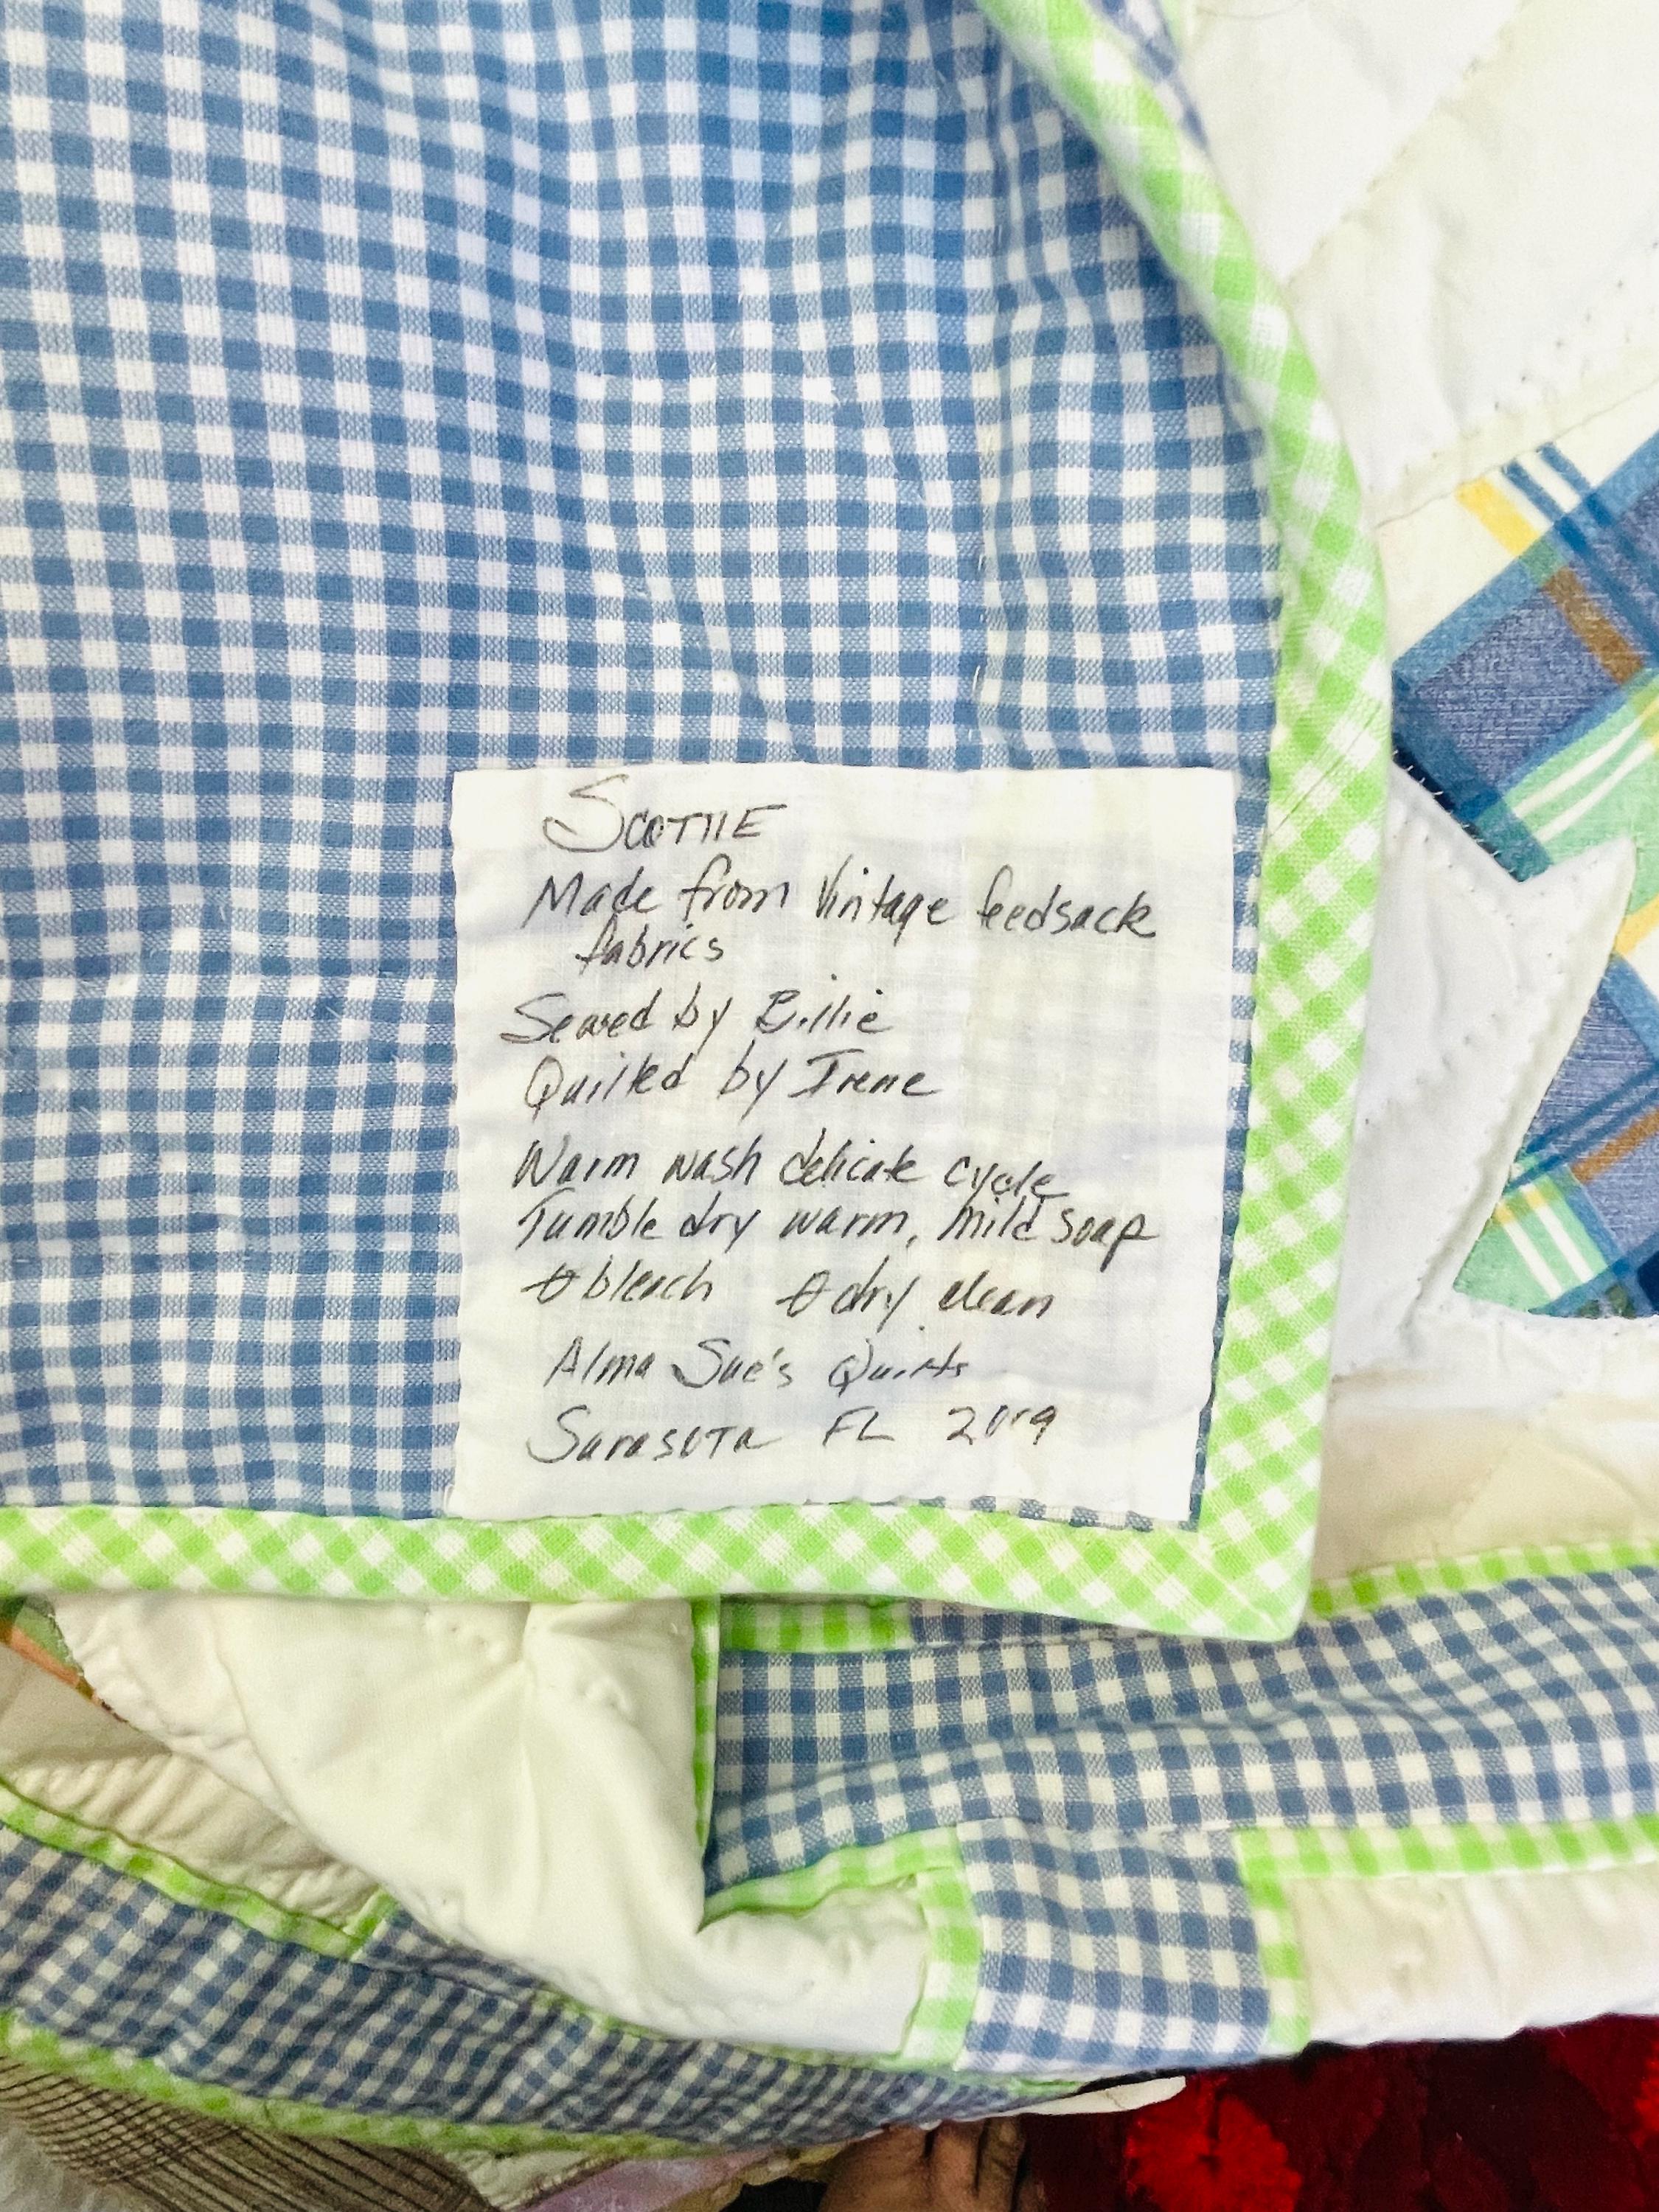 SCOTTIE
Made from Vintage feedsack
fabrics
Sewed by Billie
Quilted by Irene
Warm wash delicate cycle
Tumble dry warm, mild soap
θ bleach θ dry clean
Alma Sue's Quilts
Sarasota FL 2019